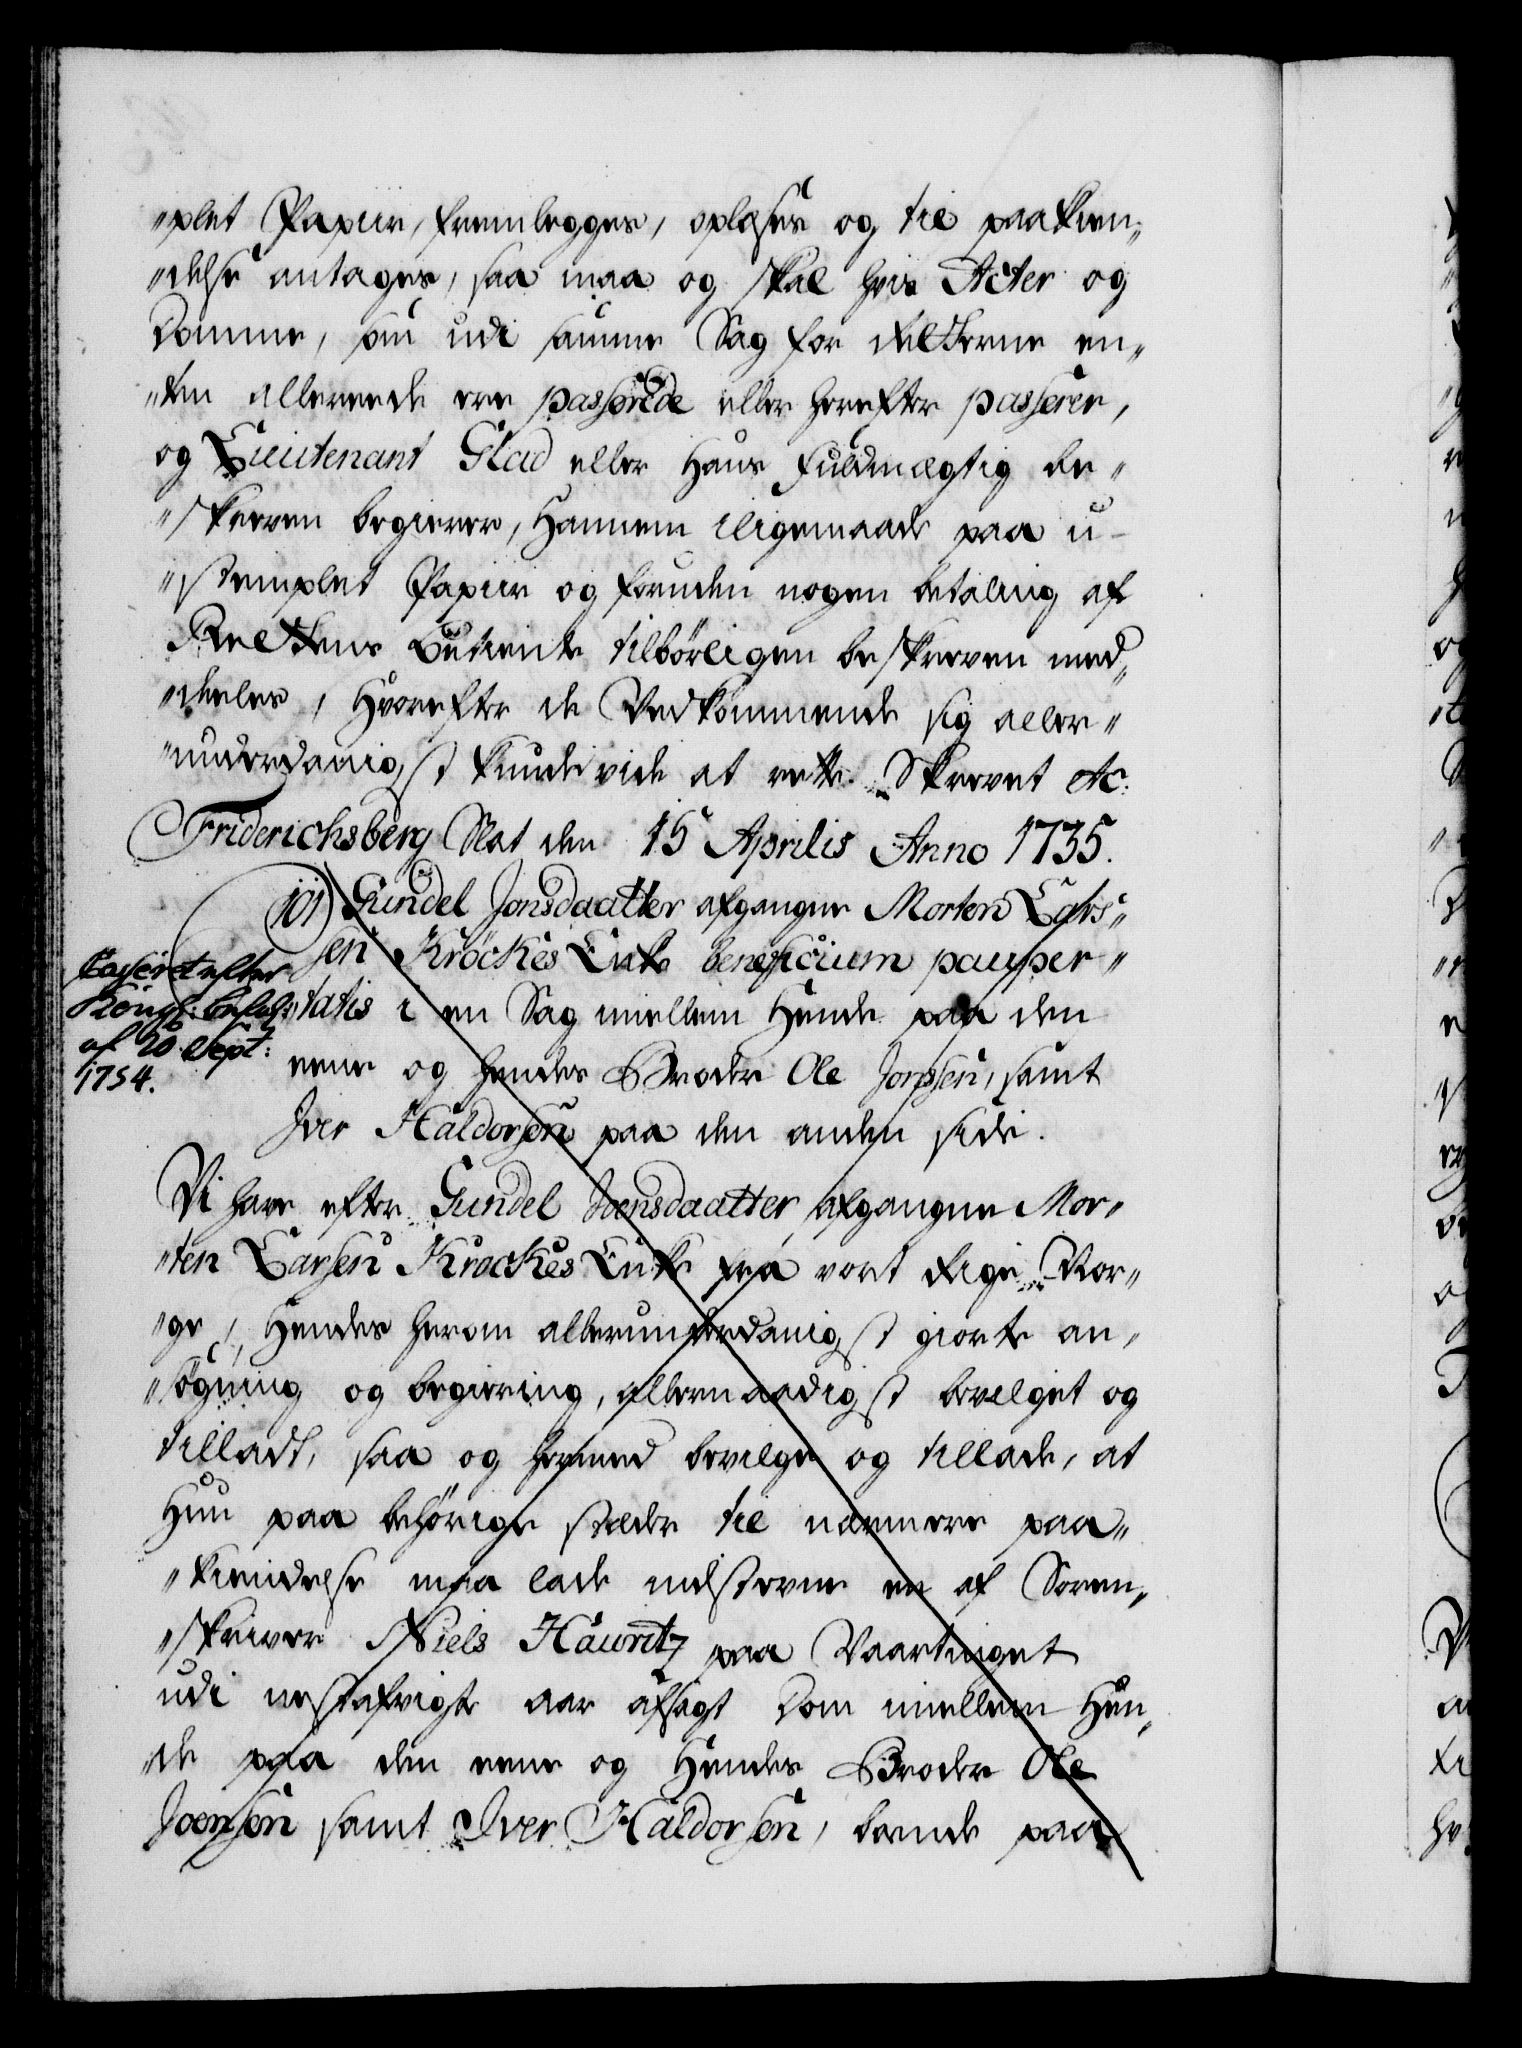 "plet Papiir, fremlegges, oplæses og til paakien„
"delse antages, saa maa og skal hvis Acter og
Domme, som udi samme Sag for Retterne en„
"ten allereede ere passerede eller herefter passerer,
og Lieutenant Glad eller Hans Fuldmægtig be„
"skreven begierer, Hannem iligemaade paa u-
"stemplet Papiir og foruden nogen betaling af
Rettens Betiente tilbørligen beskreven med„
"deeles, Hvorefter de Vedkommende sig aller„
"underdanigst kunde vide at rette. Skrevet etc:
Friderichsberg Slot den 15 Aprilis Anno 1735.
101) Gundel Jonsdaatter afgangne Morten Lars„
sen Krockes Enke beneficium pauper„
tatis i en Sag imellem Hende paa den
eene og hendes Broder Ole Jonssen, samt
Iver Haldorsen paa den anden side.
Casseret efter
Kongl: befal:
af 20 Sept:
1754.
Vi have efter Gundel Joensdaatter, afgangne Mor„
"ten Larsen Krockes Enke fra vort Rige Nor„
"ge, Hendes herom allerunderdanigst giorte an„
"søgning og begiering, allernaadigst bevilget og
tilladt, saa og hermed bevilge og tillade, at
Hun paa behørige stæder til nærmere paa„
"kiendelse maa lade indstevne en af Soren„
"skriver Niels Hauritz paa Vaartinget
udi nestafvigte aar afsagt Dom imellem Hen„
"de paa den eene og Hendes Broder Ole
Joensen samt Iver Haldorsen, boende paa